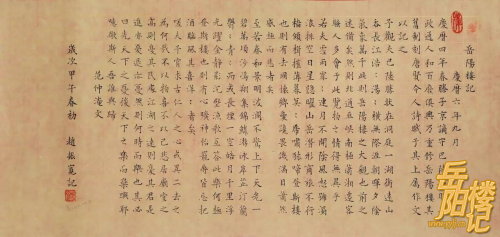 岳陽樓記
慶曆六年九月
慶曆四年春滕子京謫守巴
政通人和百廢俱興乃重修岳陽樓其
舊制刻唐賢今人詩賦于其上屬作文
以記之
予觀夫巴陵勝狀在洞庭一湖銜遠山
吞長江浩浩湯湯橫無際涯朝暉夕陰
氣象萬千此則岳陽樓之大觀也前
述備矣然則北通巫峽南極瀟湘遷客
騷人多會于此覽物之情得無異乎
若夫霪雨霏霏連月不開陰風怒號濁
浪排空日星隱曜山岳潛形商旅不行
檣傾楫摧薄暮冥冥虎嘯猿啼登斯樓
也則有去國懷鄉憂讒畏譏滿目蕭
感極而悲者矣
至若春和景明波瀾不驚上下天光一
碧萬頃沙鷗翔集錦鱗游泳岸芷汀蘭
郁郁青青而或長煙一空皓月千里浮
光躍金靜影沉璧漁歌互答此樂何極
登斯樓也則有心曠神怡寵辱皆忘把
酒臨風其喜洋洋者矣
嗟夫予嘗求古仁人之心或異二者之
為何哉不以物喜不以己悲居廟堂之
高則憂其民處江湖之遠則憂其君是
進亦憂退亦憂然則何時而樂耶其
曰先天下之憂而憂後天下之樂而樂歟
噫微斯人吾誰與歸
范仲淹文
歲次甲午春初 趙 寬記
岳阳楼记